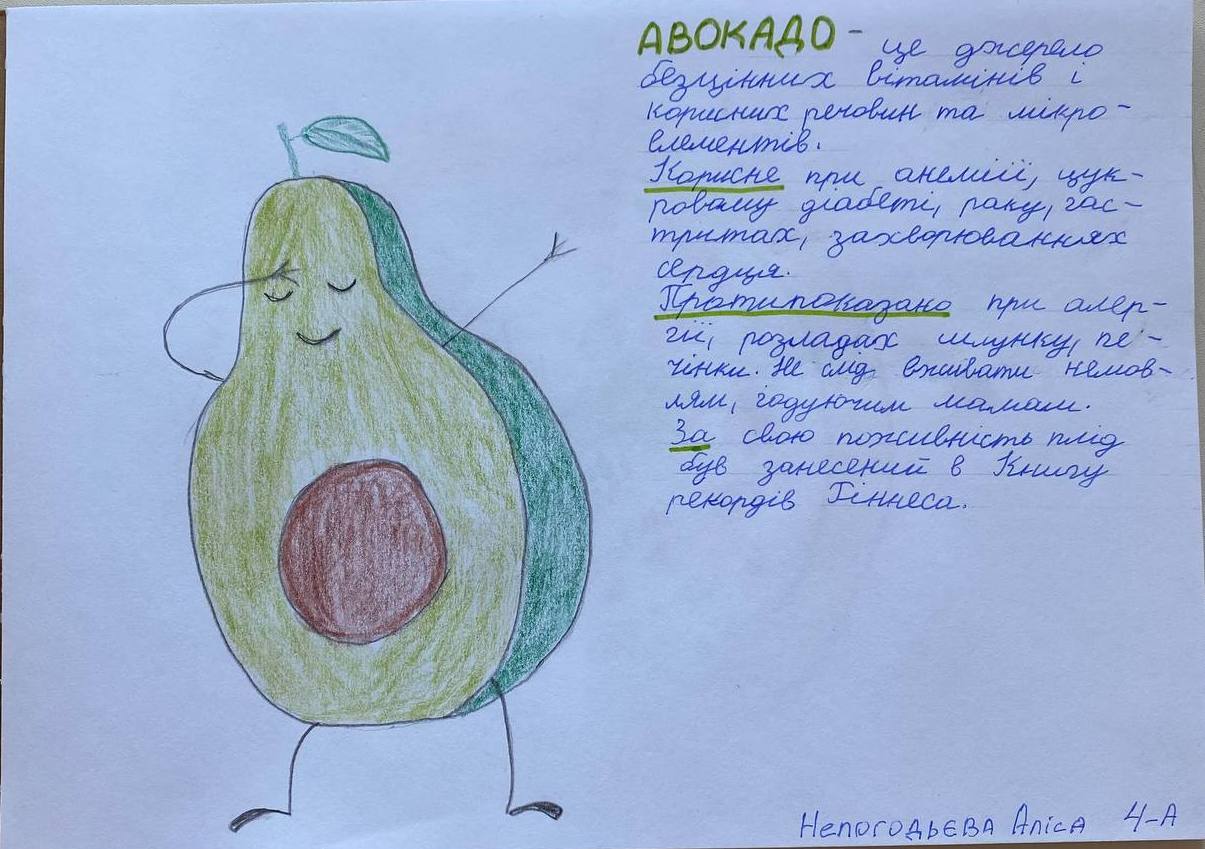 АВОКАДО - це джерело
безцінних вітамінів і
корисних речовин та мікро-
елементів.
Корисне при анемії, цук-
ровому діабеті, раку, гас-
тритах, захворюваннях
сердця.
Протипоказано при алер-
гії, розладах шлунку, пе-
чінки. Не слід вживати немов-
лям, годуючим мамам.
За свою поживність плід
був занесений в Книгу
рекордів Гіннеса.
Непогодьєва Аліса 4-А